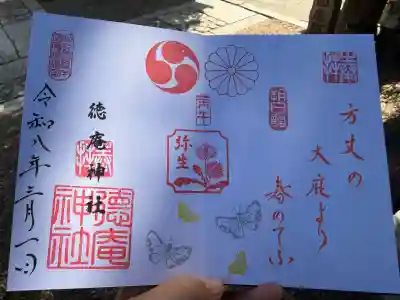 方丈の
大庭より
春のてふ
丙午
弥生
徳庵神社
德庵
神社
令和八年三月一日